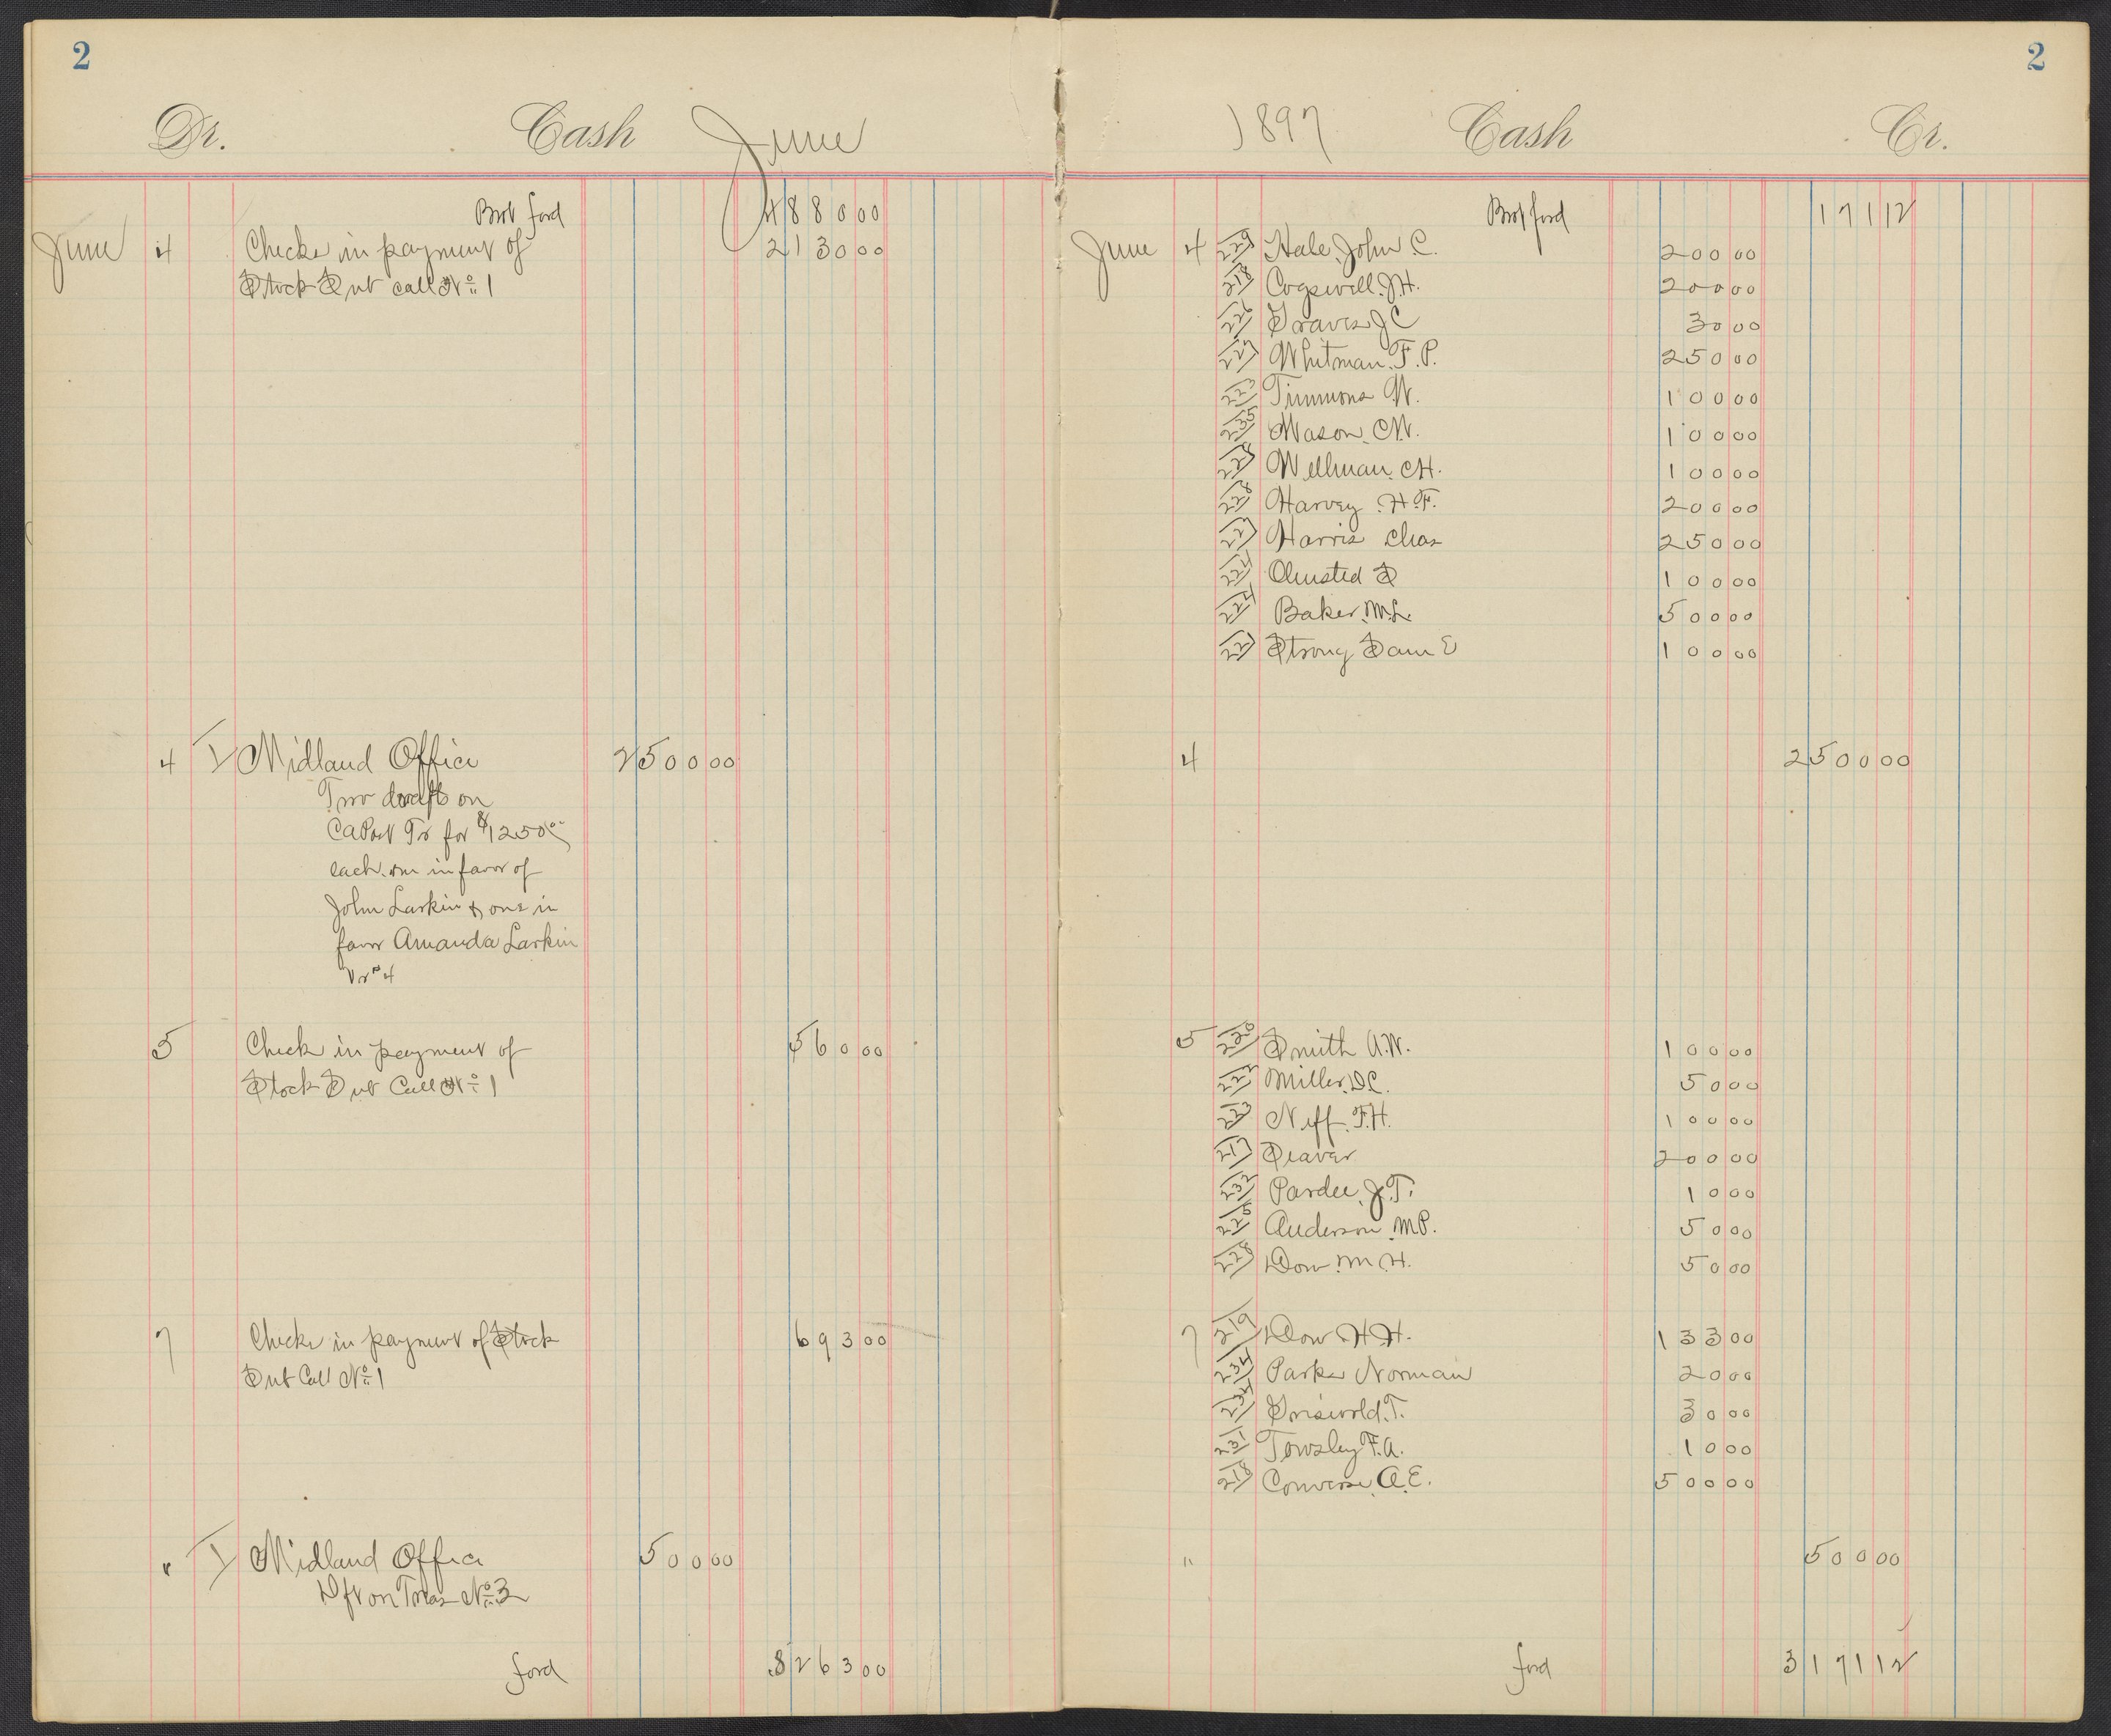 2
Dr. Cash June
Brot ford 4880 00
June 4 Checks in payment of 2130 00
Stock Sub call No 1
4 1 Midland Office 2500 00
Two drafts on
Tr for $1250 00
each one in favor of
John Larkin & one in
favor Amanda Larkin
Vr # 4
5 Check in payment of 560 00
Stock Sub Call No 1
7 Checks in payment of Stock 693 00
Sub Call No 1
" 1 Midland Office 500 00
Dft on Treas No 3
ford 8263 00
2
1897 Cash Cr.
Brot ford 171 12
June 4 229 Hale, John C. 200 00
218 Cogswell, J.H. 200 00
226 Graves J C 30 00
227 Whitman, F. P. 250 00
223 Timmons W. 100 00
235 Mason, C.W. 100 00
228 Wellman, C H. 100 00
228 Harvey H. F. 200 00
227 Harris Chas 250 00
224 Olmsted S 100 00
224 Baker, M.L. 500 00
227 Strong Sam E 100 00
4 2500 00
5 220 Smith A.W. 100 00
222 Miller, D.C. 50 00
223 Neff, F.H. 100 00
217 Seaver 200 00
232 Pardee, J. T. 10 00
225 Anderson, M P. 50 00
228 Dow M. H. 50 00
7 219 Dow H H. 133 00
234 Parker Norman 20 00
234 Griswold, T. 30 00
231 Towsley F. A. 10 00
218 Converse, A. E. 500 00
" 500 00
ford 3171 12